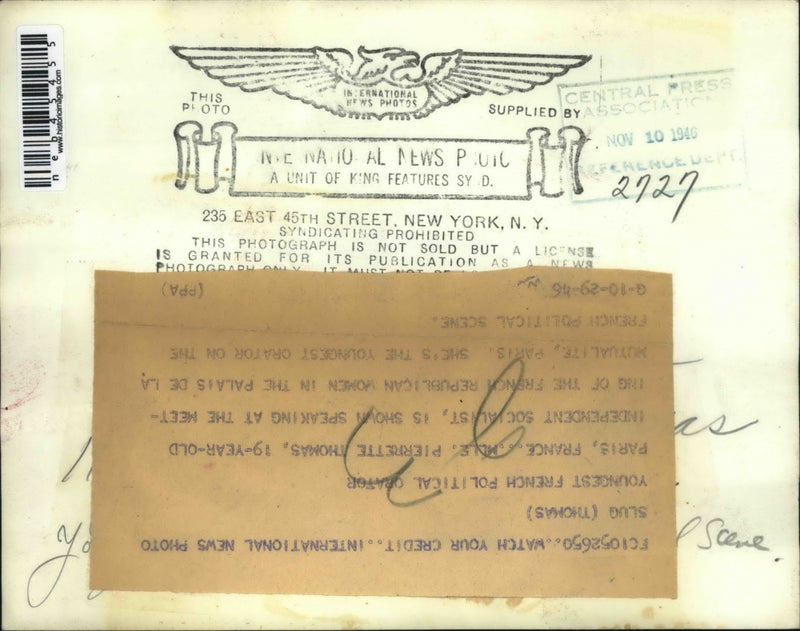 neb45455
www.historicimages.com
INTERNATIONAL
NEWS PHOTOS
THIS
PHOTO
SUPPLIED BY
CENTRAL PRESS
ASSOCIATION
NOV 10 1946
REFERENCE DEPT.
2727
INTERNATIONAL NEWS PHOTO
A UNIT OF KING FEATURES SYND.
235 EAST 45TH STREET, NEW YORK, N. Y.
SYNDICATING PROHIBITED
THIS PHOTOGRAPH IS NOT SOLD BUT A LICENSE
IS GRANTED FOR ITS PUBLICATION AS A NEWS
PHOTOGRAPH ONLY. IT MUST NOT BE
FC1052650..WATCH YOUR CREDIT..INTERNATIONAL NEWS PHOTO
SLUG (THOMAS)
YOUNGEST FRENCH POLITICAL ORATOR
PARIS, FRANCE...MLLE. PIERRETTE THOMAS, 19-YEAR-OLD
INDEPENDENT SOCIALIST, IS SHOWN SPEAKING AT THE MEET-
ING OF THE FRENCH REPUBLICAN WOMEN IN THE PALAIS DE LA
MUTUALITE, PARIS. SHE'S THE YOUNGEST ORATOR ON THE
FRENCH POLITICAL SCENE.
G-10-29-46 (PPA)
as
l Scene.